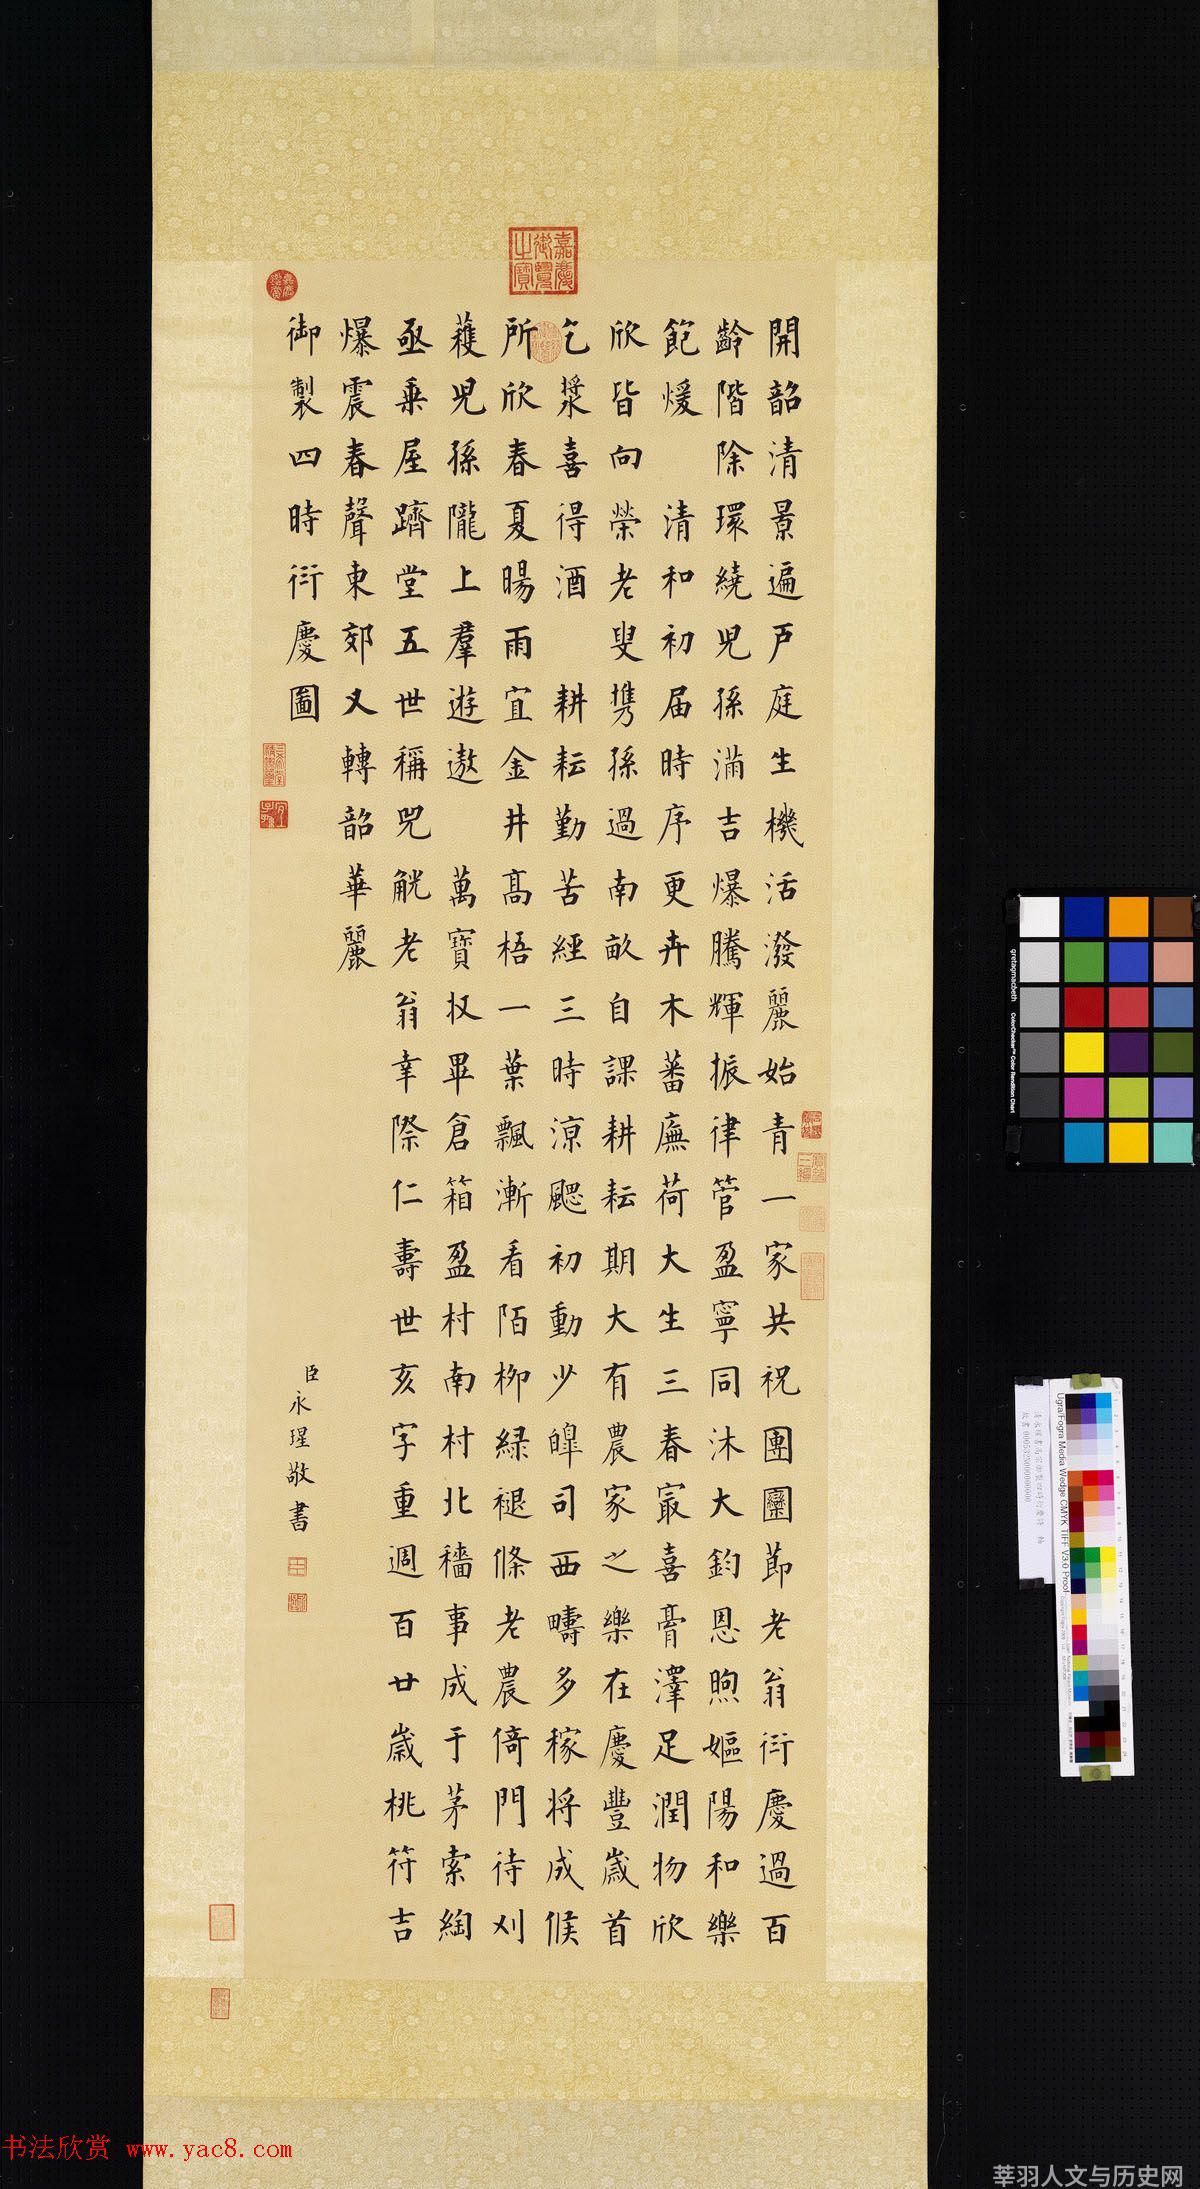 開韶清景遍戶庭生機活潑麗始青一家共祝團圞節老翁衍慶過百
齡階除環繞兒孫滿吉爆騰輝振律管盈寧同沐大鈞恩煦嫗陽和樂
飽煖 清和初届時序更卉木蕃廡荷大生三春寂喜膏澤足潤物欣
欣皆向榮老叟携孫過南畝自課耕耘期大有農家之樂在慶豐歲首
乞漿喜得酒 耕耘勤苦經三時涼颸初動少皞司西疇多稼將成候
所欣春夏暘雨宜金井高梧一葉飄漸看陌柳綠褪條老農倚門待刈
穫兒孫隴上羣遊遨 萬寶收畢倉箱盈村南村北穡事成于茅索綯
亟乗屋躋堂五世稱兕觥老翁幸際仁壽世亥字重週百廿歲桃符吉
爆震春聲東郊又轉韶華麗
御製四時衍慶圖
臣永瑆敬書
嘉慶御覽之寶
gretagmacbeth
ColorChecker™ Color Rendition Chart
Ugra/Fogra Media Wedge CMYK TIFF V3.0 Proof
书法欣赏 www.yac8.com
莘羽人文与历史网